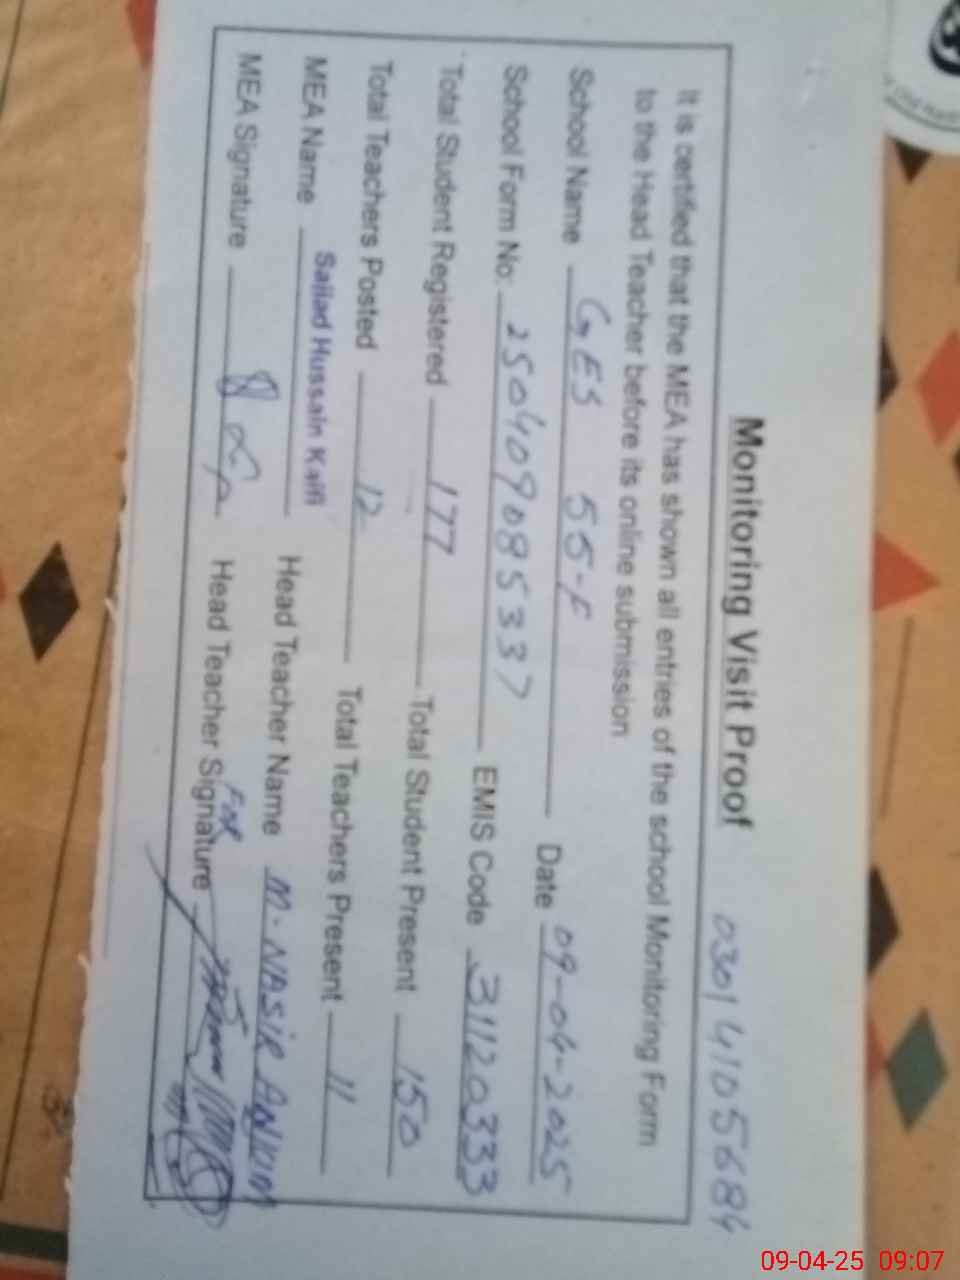 Monitoring Visit Proof 0301 4105684
It is certified that the MEA has shown all entries of the school Monitoring Form
to the Head Teacher before its online submission
School Name GES 55-F Date 09-04-2025
School Form No: 250409085337 EMIS Code 31120333
Total Student Registered 177 Total Student Present 150
Total Teachers Posted 12 Total Teachers Present 11
MEA Name Sajjad Hussain Kaifi Head Teacher Name M. NASIR ANJUM
MEA Signature Head Teacher Signature
For
09-04-25 09:07